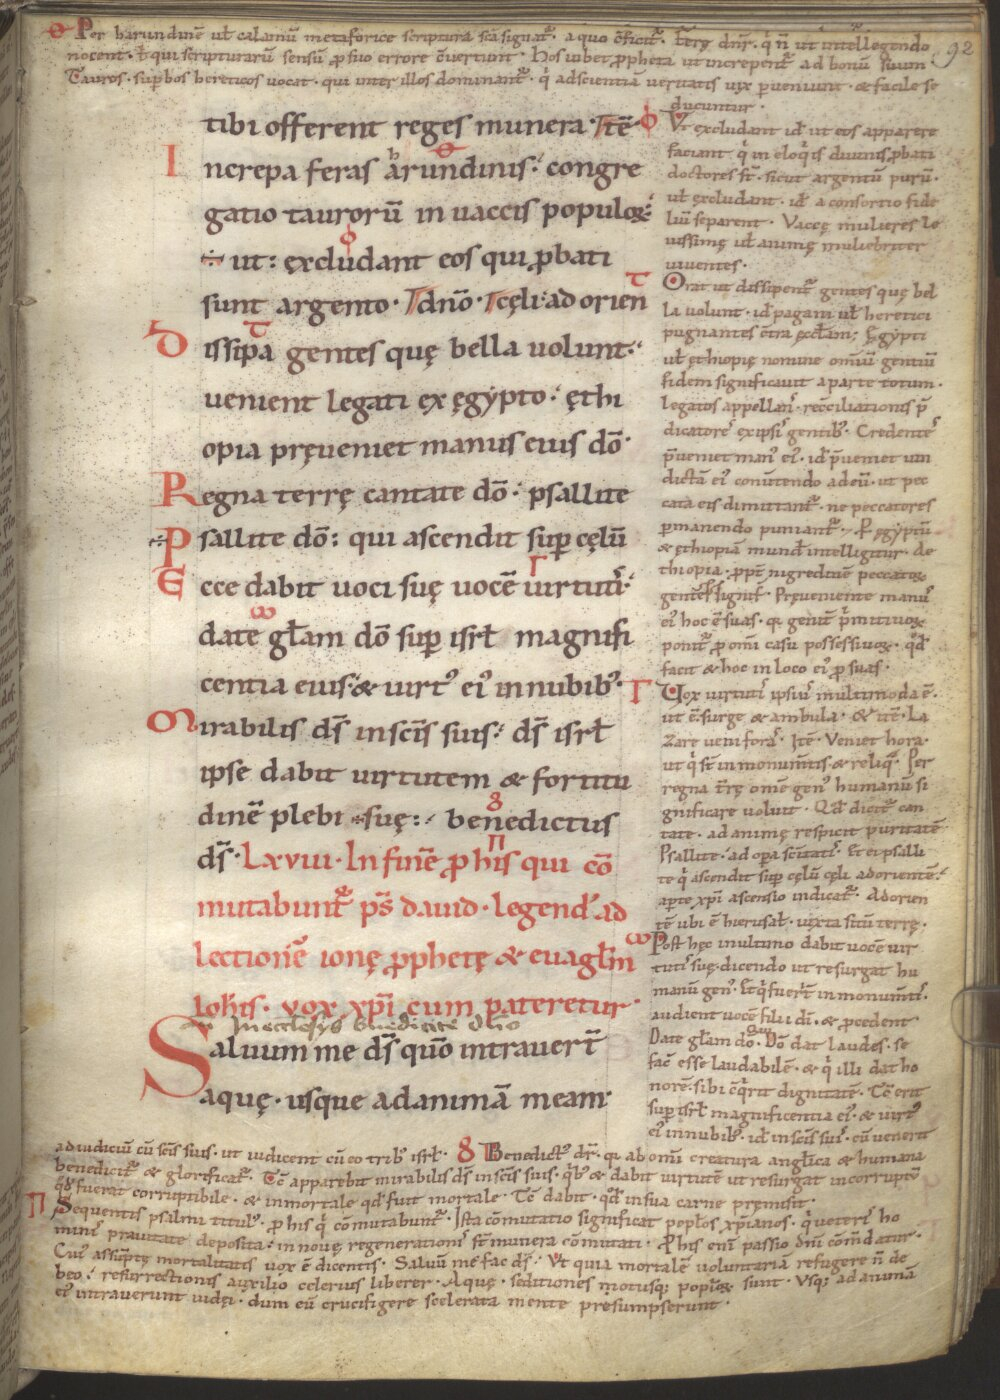 Per harundinē ul' calamū metaforice scriptura scā signat̄. a quo c̄ficit̄. t̄rę dn̄r. q̇ n̄ ut intellegendo
nocent. s̄ qui scripturarū sensū ꝓ suo errore c̄vertunt. Hos iubet ꝓpheta ut increpent̄ ad bonū suum
Tauros. supbos hereticos vocat. qui inter illos dominant̄. q̇ ad scientiā veritatis vix pveniunt. & facile se
ducuntur.
92
tibi offerent reges munera. Itē
Increpa feras arundinis: congre
gatio taurorū in vaccis populoꝝ:
÷ ut: excludant eos qui ꝓbati
sunt argento. dn̄o. cęli: ad orien
Dissipa gentes quę bella volunt:
venient legati ex ęgypto: ęthi
opia pręveniet manus eius dō.
Regna terrę cantate dō: psallite
Psallite dō: qui ascendit sup cęlū
Ecce dabit voci suę vocē virtuti:
date gl̄am dō sup isrl̄ magnifi
centia eius: & virtꝰ eiꝰ in nubibꝰ.
Mirabilis ds̄ in scīs suis: ds̄ isrl̄
ipse dabit virtutem & fortitu
dinē plebi suę: benedictus
ds̄. Lxviii. In finē ꝓ his qui cō
mutabunt̄ ps̄ david. legend' ad
lectionē ionę ꝓphetę & evagl̄m
Ioh̄is. vox xp̄i cum pateretur.
In ecclesijs benedicite d̄no
Salvum me ds̄ quō intraver̄t
aquę. usque ad animā meam.
Ut excludant id' ut eos apparere
faciant q̇ in eloq̇is divinis ꝓbati
doctores st̄. sicut argentū purū.
ul' excludant. id' a consortio fide
liū separent. Vaccę mulieres le
vissimę ul' animę muliebriter
viventes.
Orat ut dissipent̄ gentes quę bel
la volunt. id' pagani ul' heretici
pugnantes c̄tra ęccl̄am; Egypti
ul' ęthiopię nomine omīū gentiū
fidem significavit a parte totum.
legatos appellan̄. recc̄iliationis p̄
dicatorē ex ipsis gentibꝰ. Credentē
p̄veniet manꝰ eiꝰ. id' p̄veniet vin
dictā eiꝰ convtendo ad eū. ut pec
cata eis dimittant̄. ne peccatores
pmanendo puniant̄. P ęgyptū
& ęthiopiā mund' intelligitur. de
thiopia. ꝓpt̄ nigredinē peccatoꝝ
gentes signif̄. Pręveniente manū
eiꝰ hoc ē suas. q̇ genit̄ p̄mitivoꝝ
ponit̄ ꝓ omī casu possessivoꝝ. qd̄
facit & hoc in loco eiꝰ ꝓ suas.
Vox virtutis ipsius multimoda ē.
ut ē surge & ambula. & itē. La
zare veni foras. Itē. Veniet hora.
ut q̇ st̄ in monum̄tis. & reliq̇. Per
regna t̄rę omē genꝰ humanū si
gnificare voluit. Qd' dicit̄ can
tate. ad animę respicit puritatē
Psallite. ad opa scītatis. Et ei psalli
te q̇ ascendit sup cęlū cęli ad orientē:
apte xp̄i ascensio indicat̄. Ad orien
tē ubi ē hierusal'. iuxta sitū terrę.
Post hęc in ultimo dabit vocē vir
tutis suę. dicendo ut resurgat hu
manū genꝰ. Et q̇ fuer̄t in monum̄tis.
audient vocē filii dī. & ꝓcedent
Date gl̄am dō. Dō dat laudes. se
fac̄ esse laudabilē. & q̇ illi dat ho
norē. sibi c̄q̇rit dignitatē. Tc̄ erit
sup isrl̄ magnificentia eiꝰ. & virtꝰ
eiꝰ in nubibꝰ. id' in scīs suis. cū venerit
ad iudiciū cū scīs suis. ut iudicent cū eo tribꝰ isrl̄. Benedictꝰ dr̄. q̇ ab omī creatura angl̄ica & humana
benedicit̄ & glorificat̄. Tc̄ apparebit mirabilis ds̄ in scīs suis. q̇bꝰ & dabit virtutē ut resurgat incorruptū
qd̄ fuerat corruptibile. & inmortale qd̄ fuit mortale. Tc̄ dabit. qd̄ in sua carne p̄misit.
Sequentis psalmi titulꝰ. ꝓ his q̇ cōmutabunt̄. Ista cōmutatio significat popl̄os xp̄ianos. q̇ veteris ho
minis pravitate deposita: in novę regenerationis st̄ munera cōmutati. P his enī passio dnī cōm̄datur.
Cuiꝰ assūptę mortalitatis vox ē dicentis. Salvū me fac ds̄. Ut quia mortalē voluntariā refugere n̄ de
beo: resurrectionis auxilio celerius liberer. Aquę. seditiones motusq; popl̄oꝝ sunt. Vsq; ad animā
eiꝰ intraverunt iudęi. dum eū crucifigere scelerata mente presumpserunt.